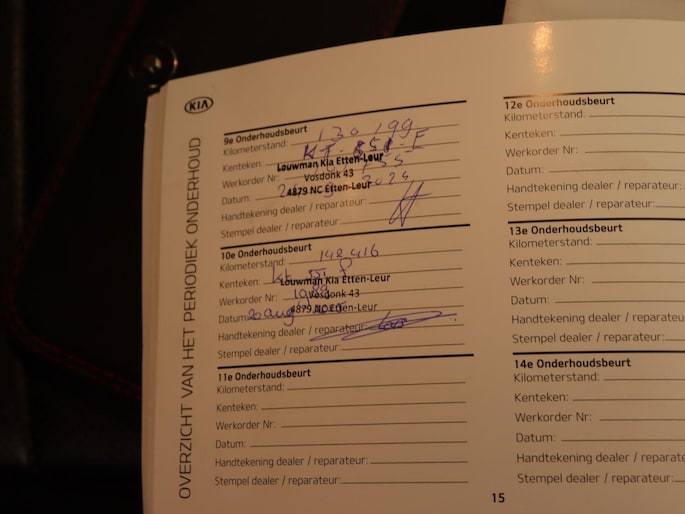 KIA
OVERZICHT VAN HET PERIODIEK ONDERHOUD
9e Onderhoudsbeurt
Kilometerstand: 130 199
Kenteken:
Louwman Kia Etten-Leur
Werkorder Nr:
Vosdonk 43
Datum: 2024
4879 NC Etten-Leur
Handtekening dealer / reparateur:
Stempel dealer / reparateur:
10e Onderhoudsbeurt
Kilometerstand: 142416
Kenteken:
Louwman Kia Etten-Leur
Werkorder Nr:
Vosdonk 43
Datum: 20 aug
4879 NC Etten-Leur
Handtekening dealer / reparateur:
Stempel dealer / reparateur:
11e Onderhoudsbeurt
Kilometerstand:
Kenteken:
Werkorder Nr:
Datum:
Handtekening dealer / reparateur:
Stempel dealer / reparateur:
12e Onderhoudsbeurt
Kilometerstand:
Kenteken:
Werkorder Nr:
Datum:
Handtekening dealer / reparateur:
Stempel dealer / reparateur:
13e Onderhoudsbeurt
Kilometerstand:
Kenteken:
Werkorder Nr:
Datum:
Handtekening dealer / reparateur
Stempel dealer / reparateur:
14e Onderhoudsbeurt
Kilometerstand:
Kenteken:
Werkorder Nr:
Datum:
Handtekening dealer / reparate
Stempel dealer / reparateur:
15